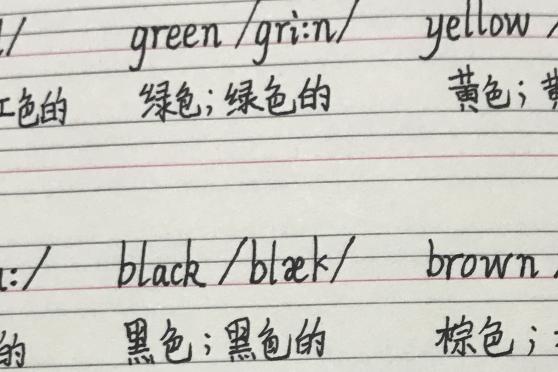 / green /gri:n/ yellow /
红色的 绿色；绿色的 黄色；黄
:/ black /blæk/ brown /
的 黑色；黑色的 棕色；